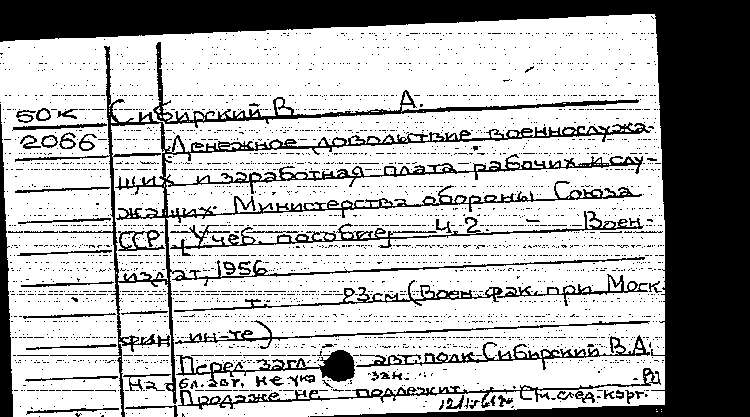 50к Сибирский, В А.
2066 Денежное довольствие военнослужа-
щих и заработная плата рабочих и слу-
жащих Министерства обороны Союза
ССР. [Учеб. пособие] Ч. 2 - Воен-
издат, 1956
т. 23см. (Воен. фак. при Моск.
фин. ин-те)
Перед загл авт: полк. Сибирский В.А.
На обл. авт. не ука зан.
Продаже не подлежит. См. след. карт.